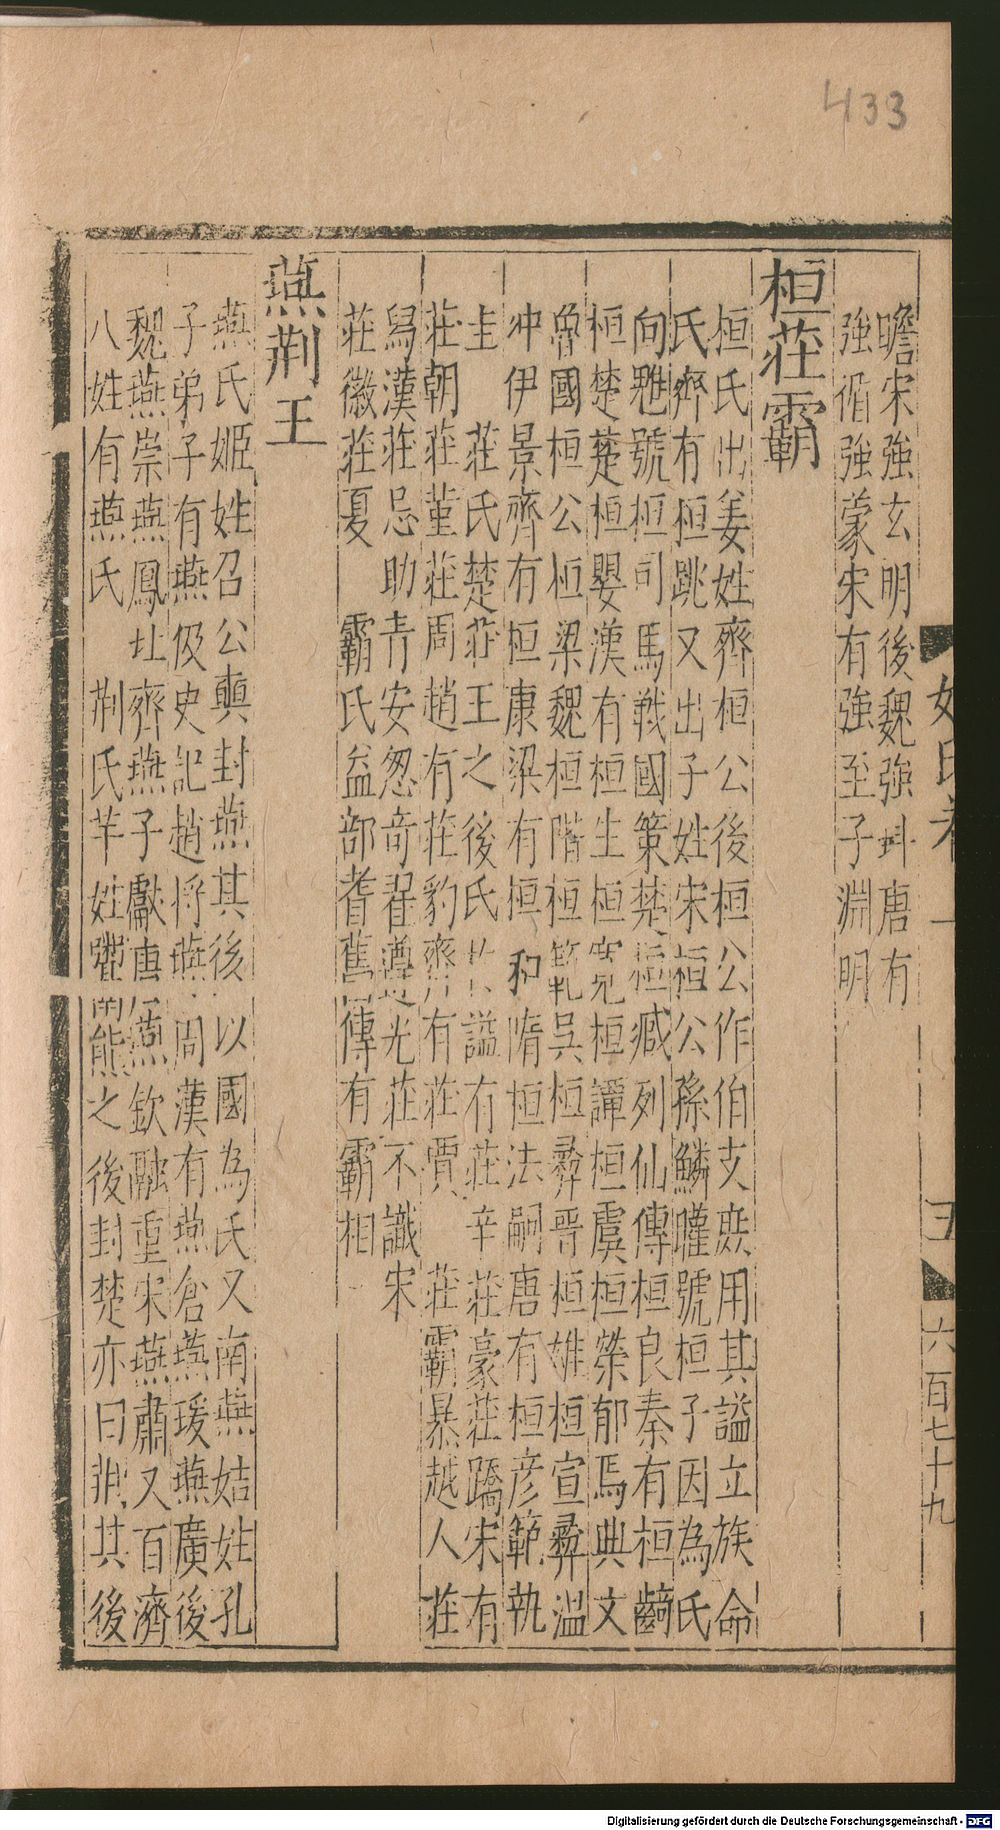 433
瞻宋強玄明後魏強 唐有
強循強蒙宋有強至子淵明
桓莊霸
桓氏出姜姓齊桓公後桓公作伯支庶用其謚立族命
氏齊有桓跳又出子姓宋桓公孫鱗矔號桓子因為氏
向魋號桓司馬戰國策楚桓臧列仙傳桓良秦有桓齮
桓楚楚桓嬰漢有桓生桓寬桓譚桓虞桓榮郁焉典文
魯國桓公桓梁魏桓階桓範吳桓彞晉桓雄桓宣彞溫
沖伊景齊有桓康梁有桓和隋桓法嗣唐有桓彦範執
圭 莊氏楚莊王之後氏於謚有莊辛莊豪莊蹻宋有
莊朝莊堇莊周趙有莊豹齊有莊賈 莊霸暴越人莊
舄漢莊忌助青安怱奇翟遵光莊不識宋
莊徽莊夏 霸氏益部耆舊傳有霸相
燕荆王
燕氏姬姓召公奭封燕其後以國為氏又南燕姞姓孔
子弟子有燕伋史記趙將燕周漢有燕倉燕瑗燕廣後
魏燕崇燕鳳 齊燕子獻唐燕欽融重宋燕肅又百濟
八姓有燕氏 荆氏羋姓鬻熊之後封楚亦曰荆其後
姓氏卷一
五
六百七十九
Digitalisierung gefördert durch die Deutsche Forschungsgemeinschaft - DFG